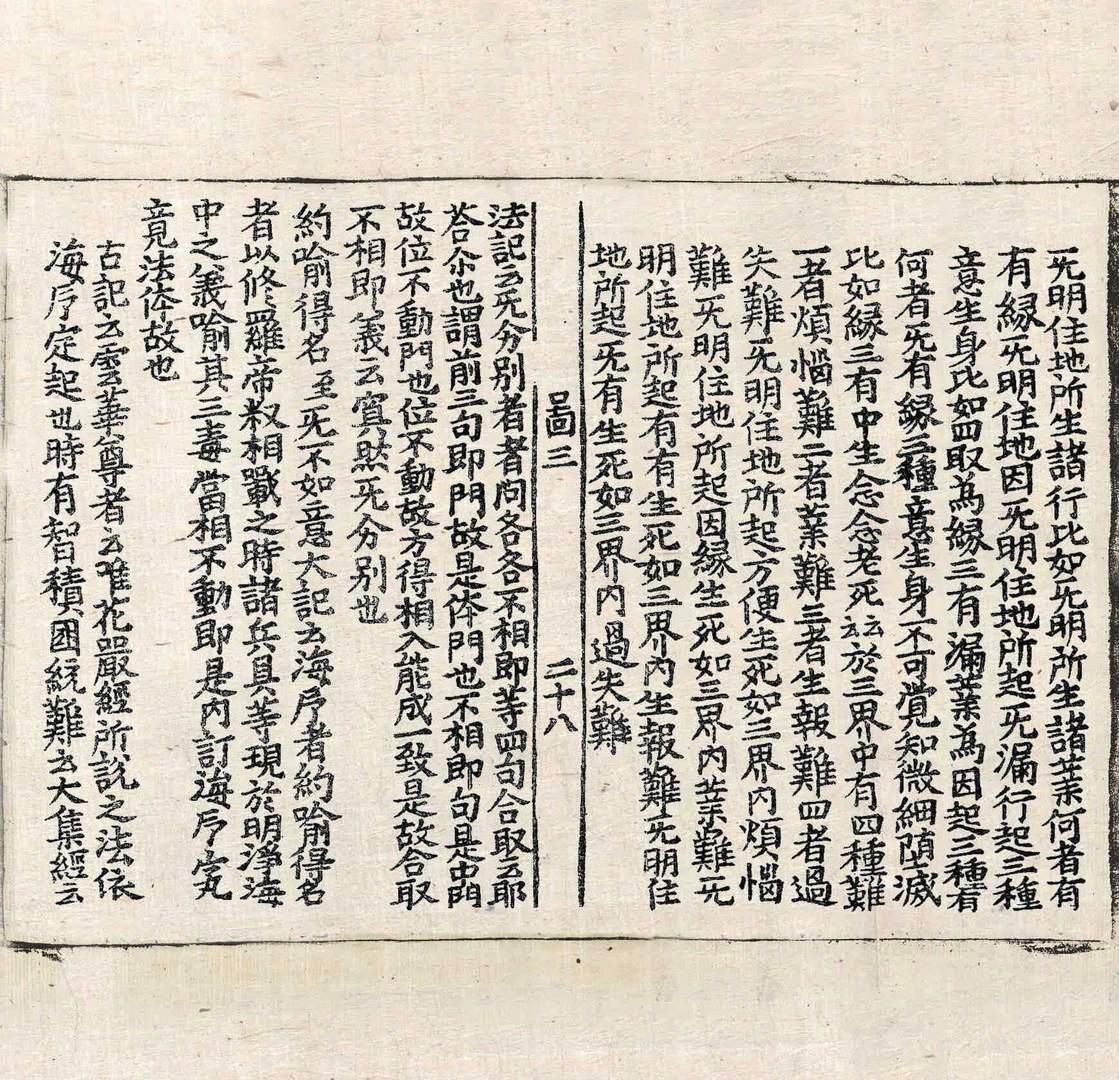 无明住地所生諸行比如无明所生諸業何者有
有縁无明住地因无明住地所起无漏行起三種
意生身比如四取為縁三有漏業為因起三種有
何者无有縁三種意生身不可覚知微細堕滅
比如縁三有中生念念老死云云於三界中有四種難
一者煩惱難二者業難三者生報難四者過
失難无明住地所起方便生死如三界内煩惱
難无明住地所起因縁生死如三界内業難无
明住地所起有有生死如三界内生報難无明住
地所起无有生死如三界内過失難
啚三 二十八
法記云无分别者者問各各不相即等四句合取云耶
荅尒也謂前三句即門故是体門也不相即句是中門
故位不動門也位不動故方得相入能成一致是故合取
不相即義云冥然无分别也
約喻得名至无不如意大記云海印者約喻得名
者以修羅帝𥝠相戰之時諸兵具等現於明淨海
中之義喻其三毒當相不動即是内訂海印定究
竟法体故也
古記云雲華尊者云唯花嚴經所說之法依
海印定起也時有智積國統難云大集經云